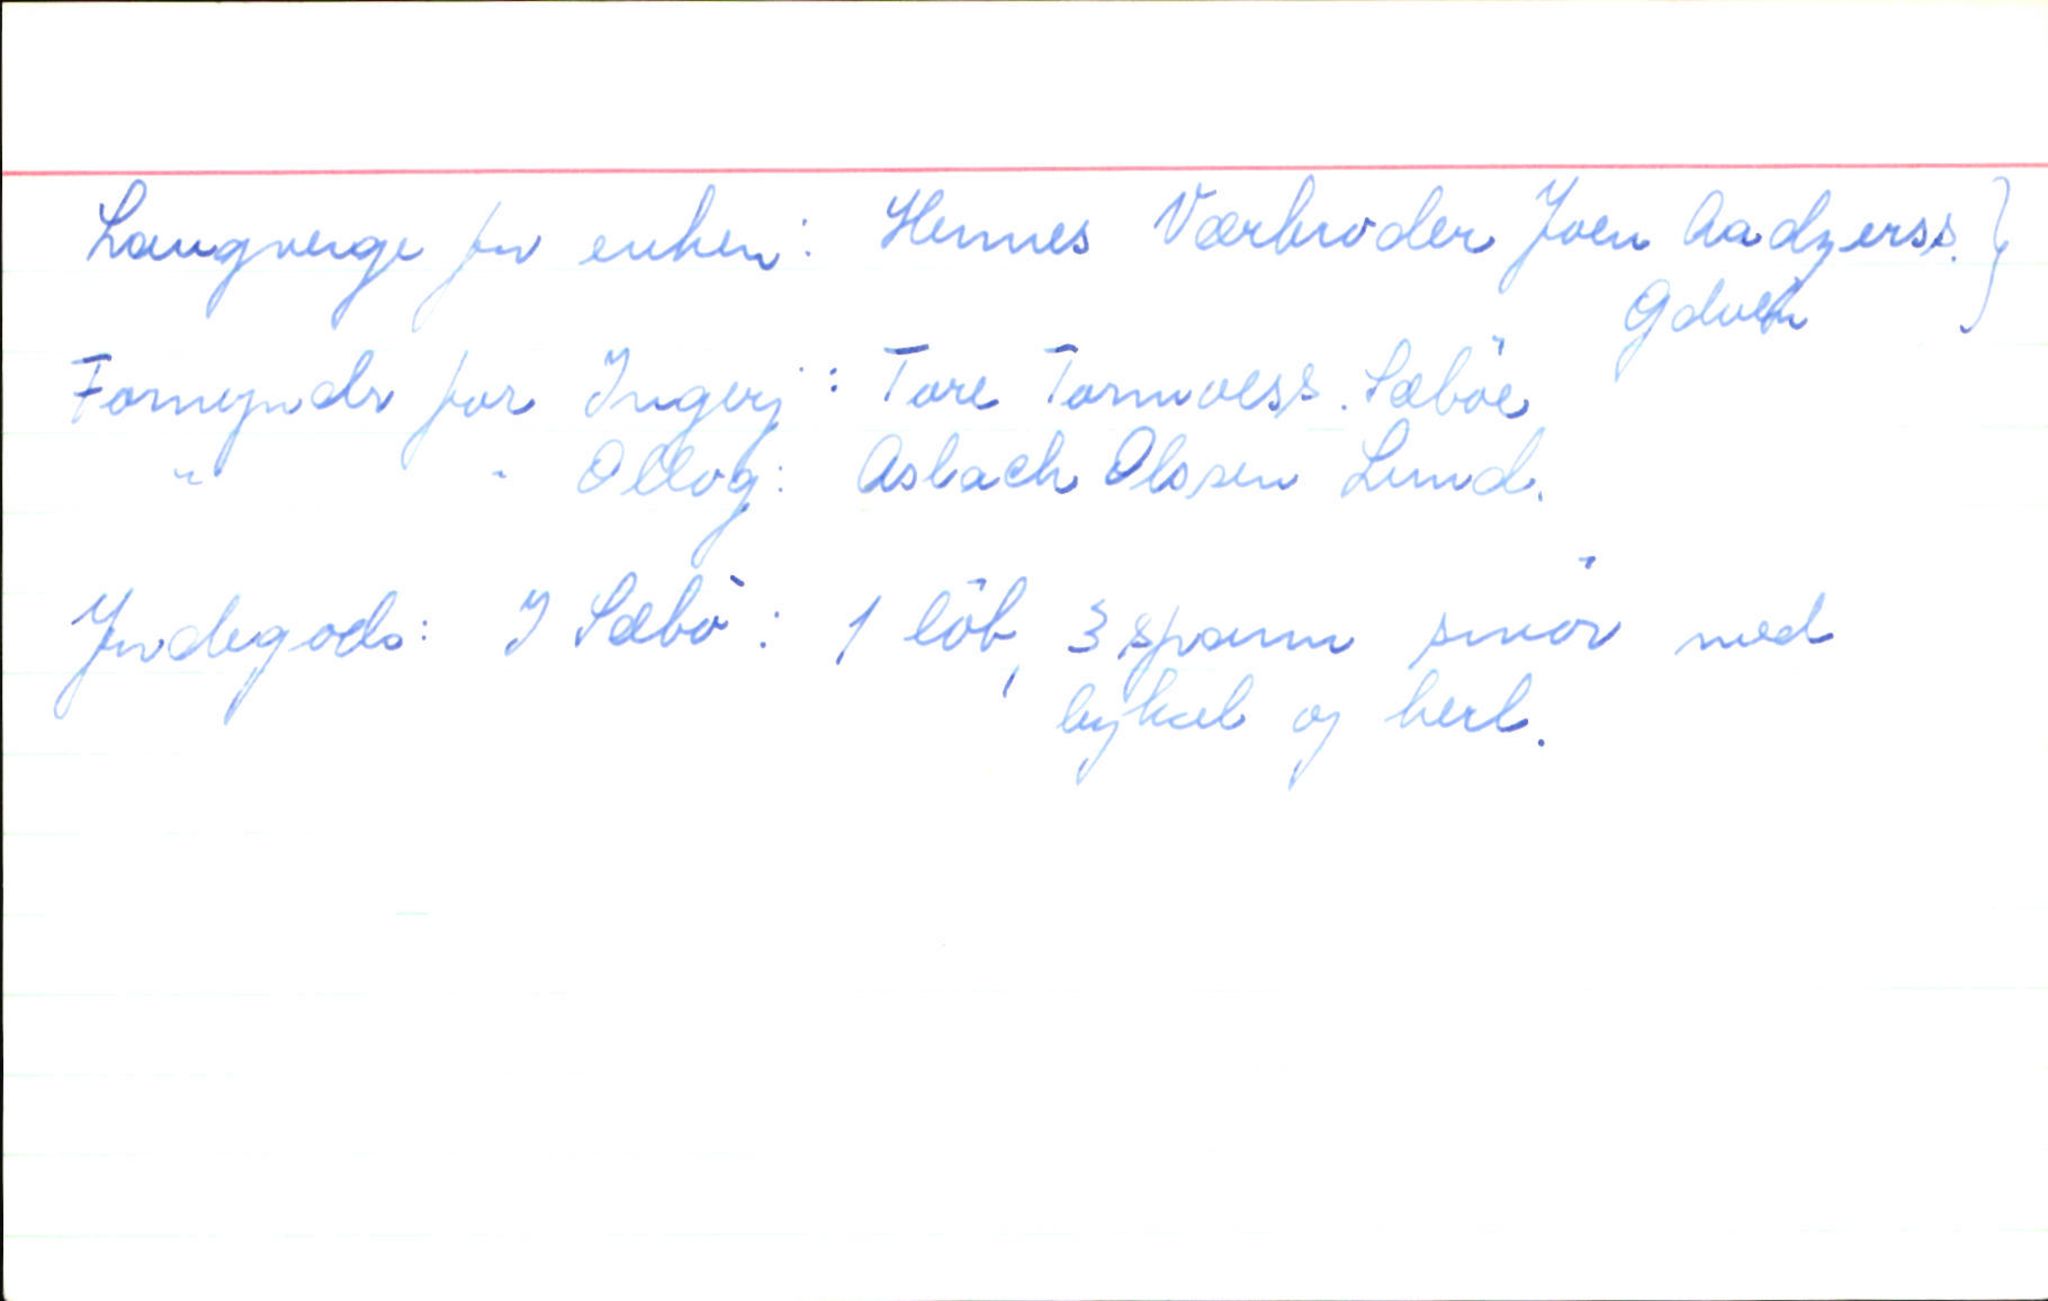 Laugverge for enken: Hennes Værbroder Joen Aadzerss. }
Gdven
Formyndr for Ingerj: Tore Tormoess. Sæböe
" " Ollog: Aslach Olssen Lund.
Jordegods: I Sæbö: 1 löb, 3 spann smör med
byksel og herl.